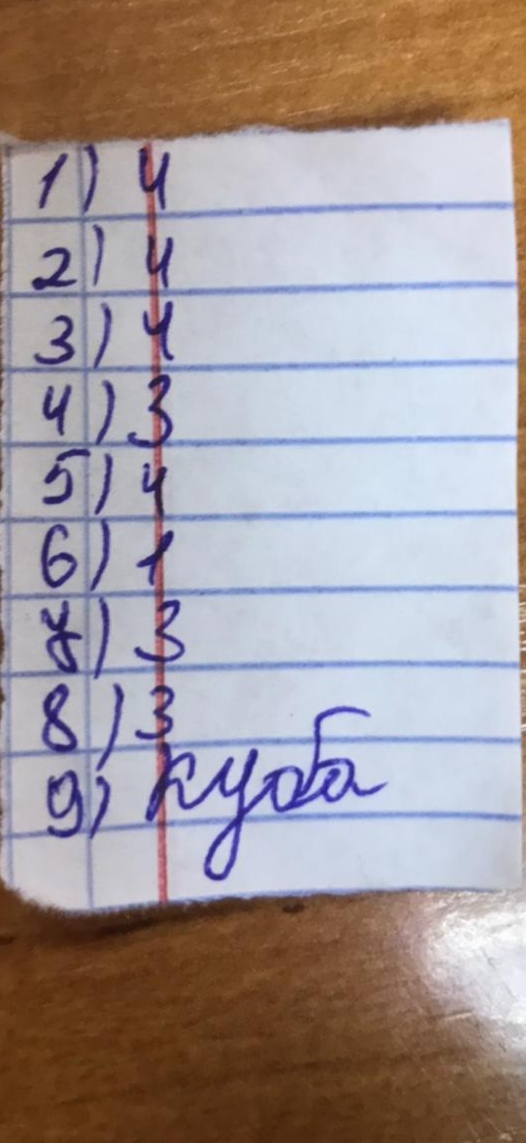 1) 4
2) 4
3) 4
4) 3
5) 4
6) 1
7) 3
8) 3
9) Куба